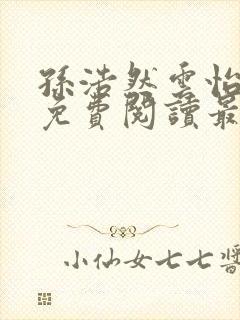 孫浩然雲怡
免費閱讀最
小仙女七七醬